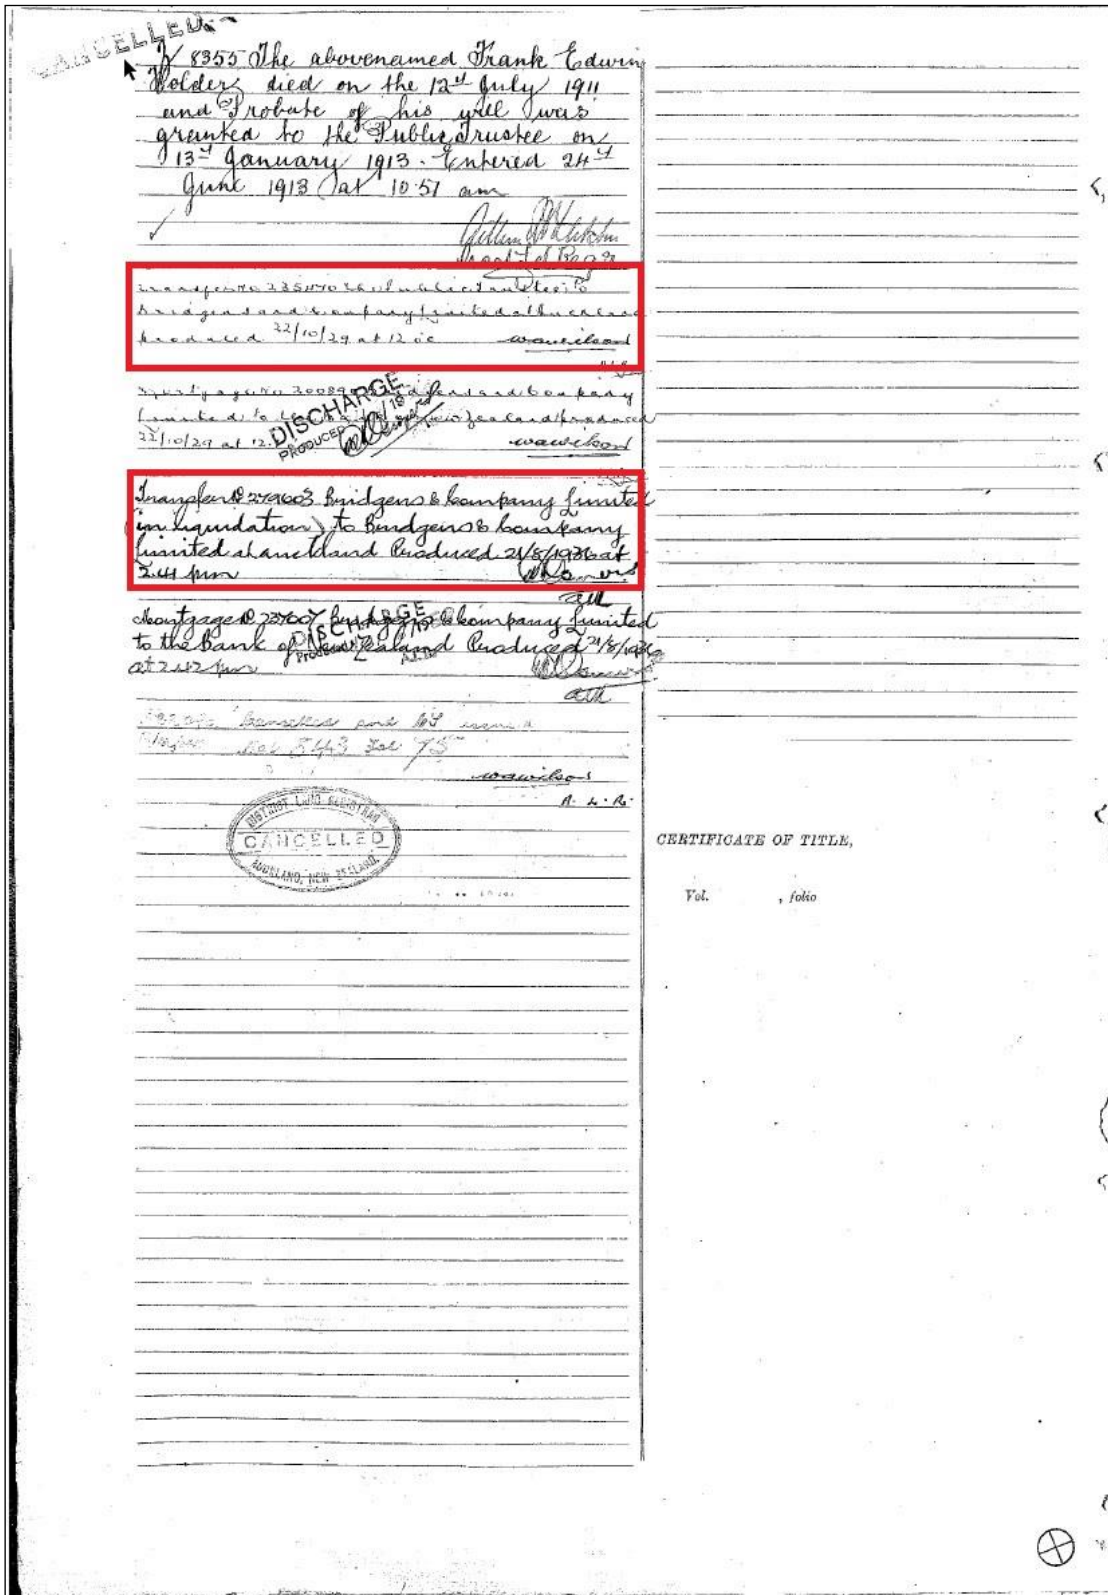 CANCELLED
8355 The abovenamed Frank Edwin
Holder died on the 12th July 1911
and Probate of his will was
granted to the Public Trustee on
13th January 1913. Entered 24th
June 1913 at 10.51 am
Transfer No The Public Trustee to
Bridgens and Company Limited at Auckland
produced 22/10/29 at 12 oc wawilson
Mortgage No Bridgens and Company
Limited to the New Zealand produced
22/10/29 at 12. wawilson
DISCHARGE
PRODUCED
Transfer No 279603 Bridgens & Company Limited
(in liquidation) to Bridgens & Company
Limited at Auckland Produced 21/8/1936 at
2.41 pm
Mortgage No 237007 Bridgens & Company Limited
to the Bank of New Zealand Produced 21/8/1936
at 2.42 pm
DISCHARGE
Cancelled and
Vol 543 Fol 75
wawilson
A. L. R.
DISTRICT LAND REGISTRAR
CANCELLED
AUCKLAND, NEW ZEALAND.
CERTIFICATE OF TITLE,
Vol. , folio